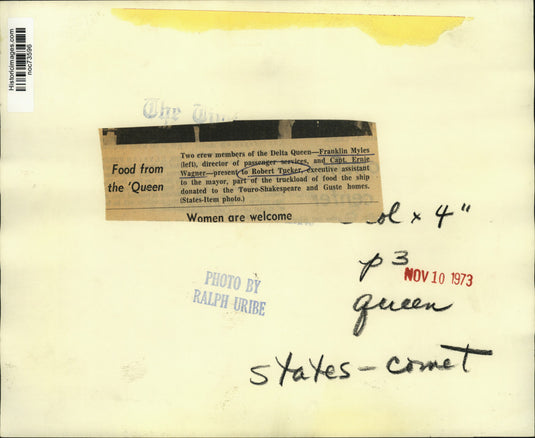 Historicimages.com
noc73596
The
Food from
the 'Queen
Two crew members of the Delta Queen—Franklin Myles
(left), director of passenger services, and Capt. Ernie
Wagner—present to Robert Tucker, executive assistant
to the mayor, part of the truckload of food the ship
donated to the Touro-Shakespeare and Guste homes.
(States-Item photo.)
Women are welcome
col x 4"
p3
NOV 10 1973
queen
PHOTO BY
RALPH URIBE
states-comet